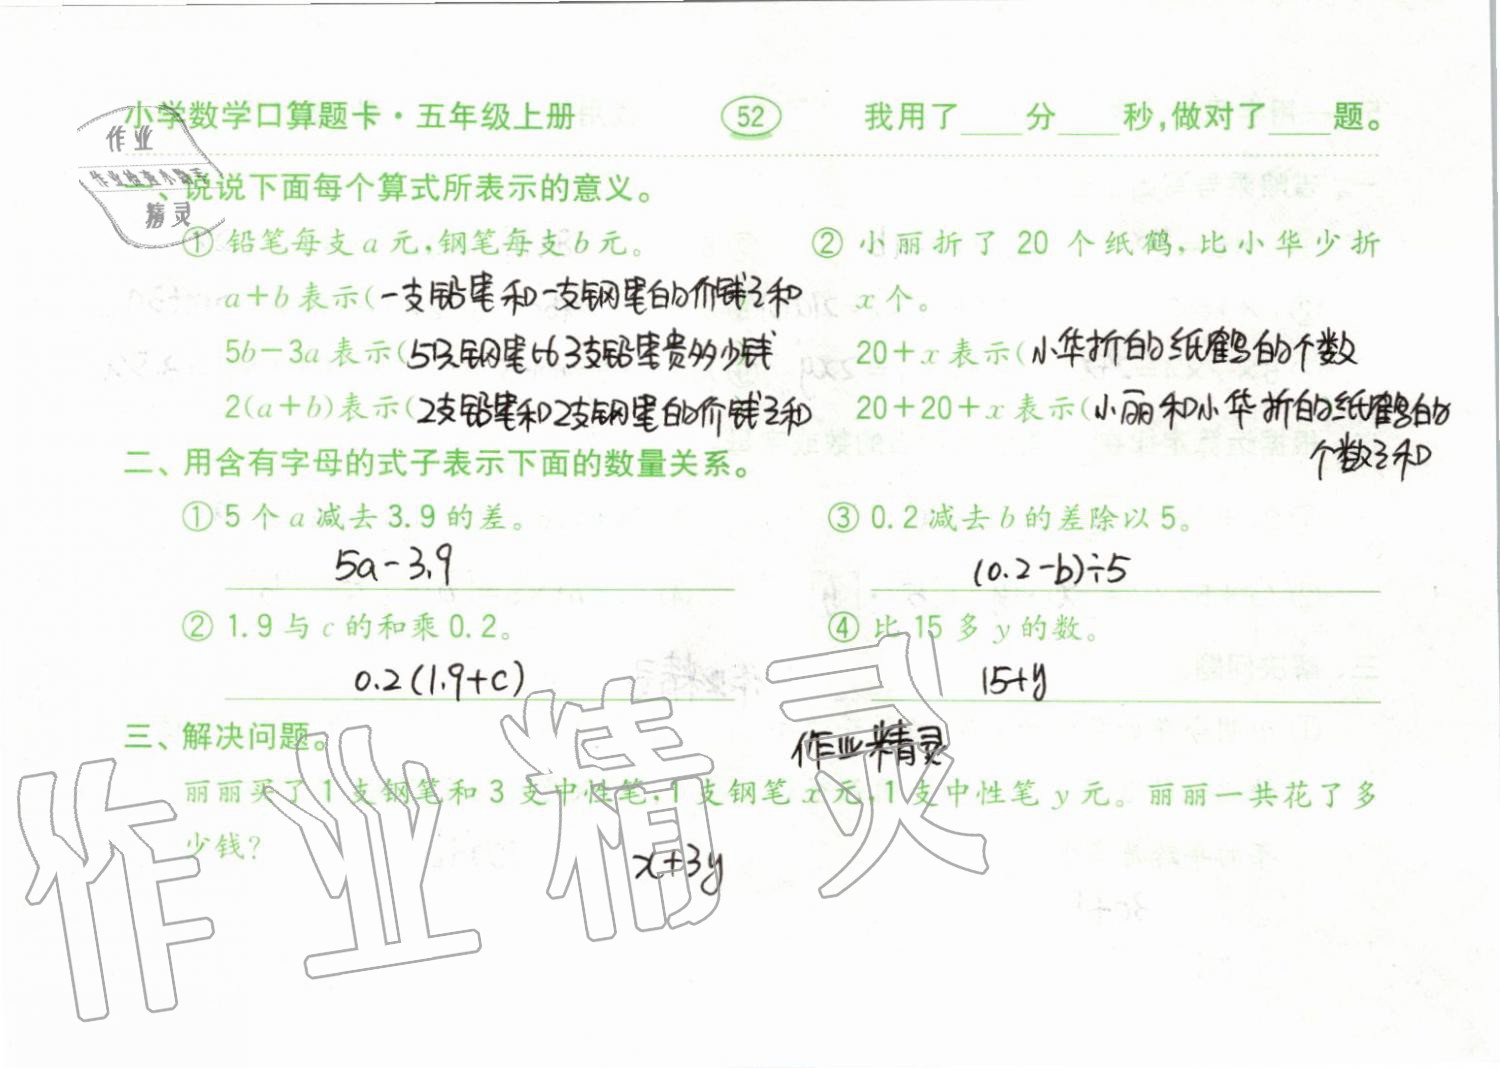 小学数学口算题卡·五年级上册 52 我用了____分____秒,做对了____题。
作业
作业检查小精灵
精灵
一、说说下面每个算式所表示的意义。
① 铅笔每支 a 元,钢笔每支 b 元。
a+b 表示(一支铅笔和一支钢笔的价钱之和
5b-3a 表示(5只钢笔比3支铅笔贵多少钱
2(a+b)表示(2支铅笔和2支钢笔的价钱之和
② 小丽折了 20 个纸鹤,比小华少折
x 个。
20+x 表示(小华折的纸鹤的个数
20+20+x 表示(小丽和小华折的纸鹤的
个数之和
二、用含有字母的式子表示下面的数量关系。
① 5 个 a 减去 3.9 的差。
5a-3.9
② 1.9 与 c 的和乘 0.2。
0.2(1.9+c)
③ 0.2 减去 b 的差除以 5。
(0.2-b)÷5
④ 比 15 多 y 的数。
15+y
三、解决问题。
作业精灵
丽丽买了 1 支钢笔和 3 支中性笔,1 支钢笔 x 元,1 支中性笔 y 元。丽丽一共花了多
少钱?
x+3y
作业精灵